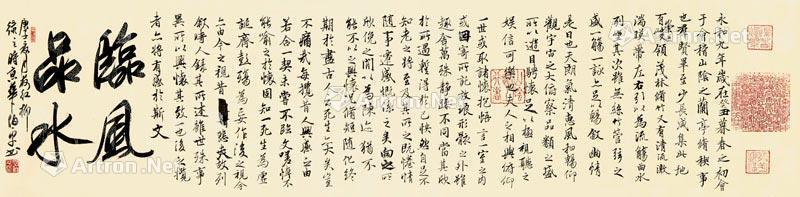 永和九年歲在癸丑暮春之初會
于會稽山陰之蘭亭脩稧事
也羣賢畢至少長咸集此地
有崇山峻領茂林脩竹又有清流激
湍暎帶左右引以為流觴曲水
列坐其次雖無絲竹管弦之
盛一觴一詠亦足以暢敘幽情
是日也天朗氣清惠風和暢仰
觀宇宙之大俯察品類之盛
所以遊目騁懷足以極視聽之
娛信可樂也夫人之相與俯仰
一世或取諸懷抱悟言一室之內
或因寄所託放浪形骸之外雖
趣舍萬殊靜躁不同當其欣
於所遇暫得於己快然自足不
知老之將至及其所之既惓情
隨事遷感慨係之矣向之所
欣俛仰之間以為陳迹猶不
能不以之興懷況脩短隨化終
期於盡古人云死生亦大矣豈
不痛哉每攬昔人興感之由
若合一契未嘗不臨文嗟悼不
能喻之於懷固知一死生為虛
誕齊彭殤為妄作後之視今
亦由今之視昔悲夫故列
敘時人錄其所述雖世殊事
異所以興懷其致一也後之攬
者亦將有感於斯文
臨風
品水